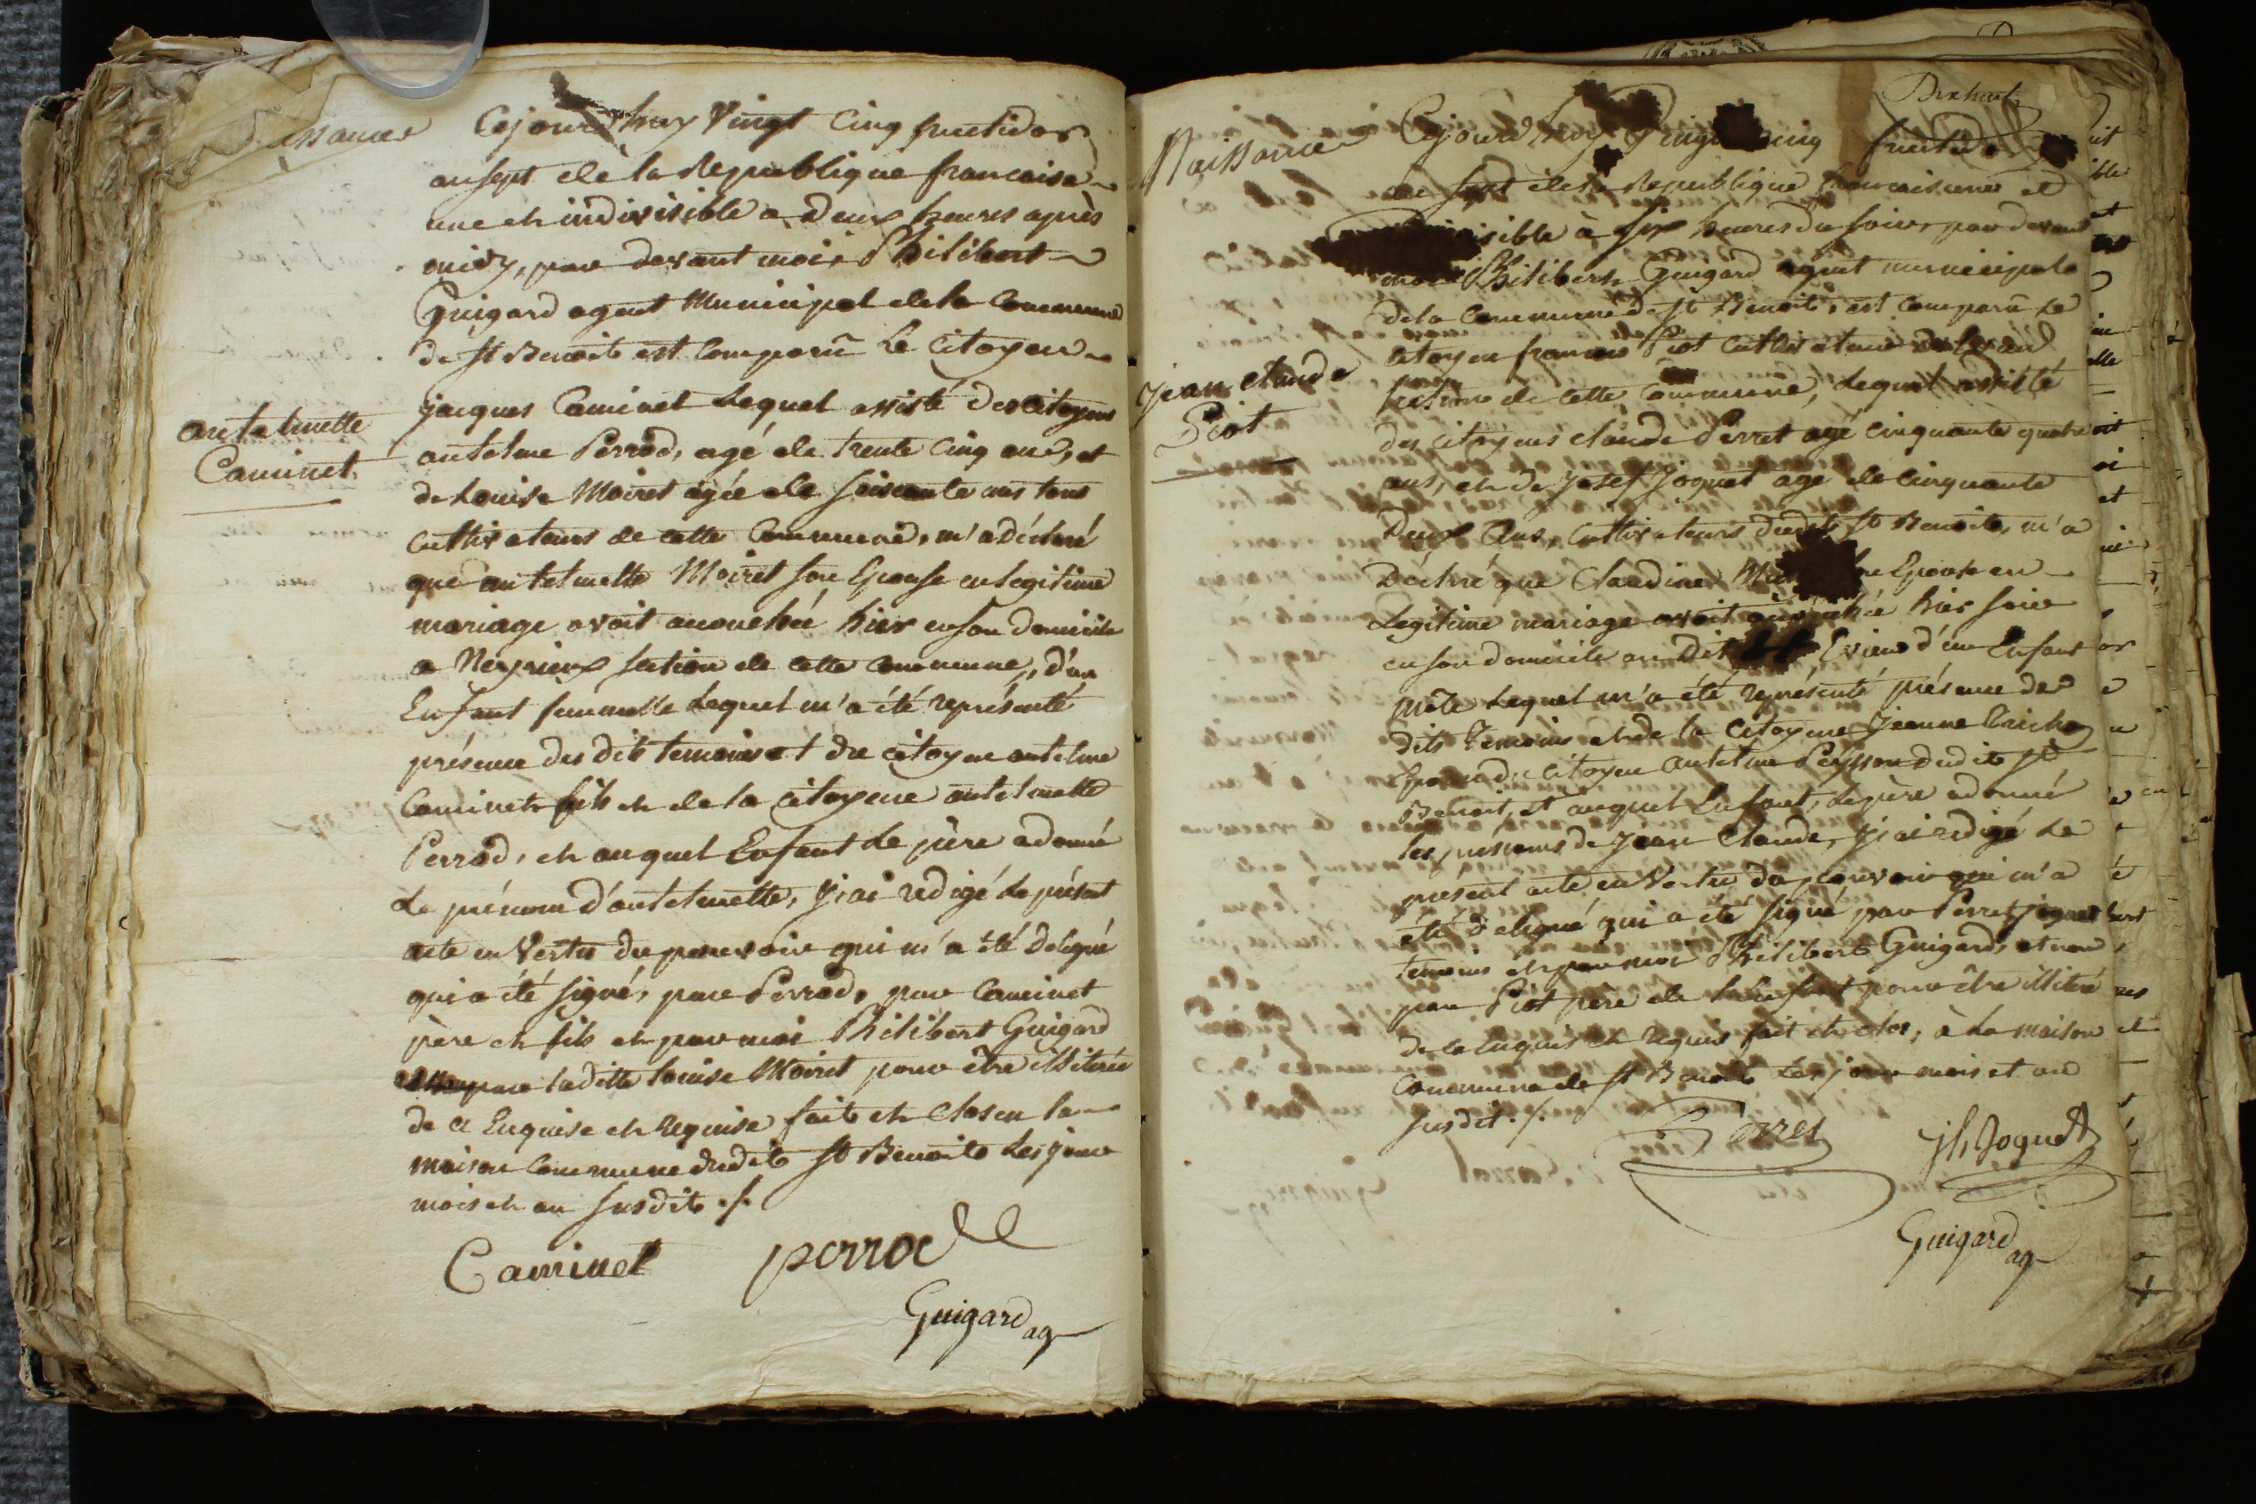 Cejourdhuy Vingt Cinq fructidor
an sept de la Republique francaise
une et indivisible a Deux heures après
midy, par devant moi Philibert
Guigard agent Municipal de la Commune
de St Benoit est Comparû Le Citoyen
jacques Caminet Lequel assisté des citoyens
antelme Perrod, agé de trente Cinq ans, et
de Louise Moiret agée de soixante ans tous
Cultivateurs de cette Commune, m'a Déclaré
que antelmette Moiret son Epouse en legitime
mariage avoit accouchée hier en son domicile
a Neyrieux section de cette Commune, d'un
Enfant femmelle Lequel m'a été représenté
présence des dits temoins et du citoyen antelme
Caminet fils et de la citoyene antelmette
Perrod, et auquel Enfant le père a donné
Le prénom d'antelmette, j'ai redigé le présent
acte en Vertu du pouvoir qui m'a été delegué
qui a été signé, par Perrod, par Caminet
père et fils et par moi Philibert Guigard
par laditte Louise Moiret pour être illiterée
de ce Enquise et Requise fait et Clos en la
maison Commune dudit St Benoit Les jour
mois et an susdit ./.
Caminet perrod
Guigard ag
antelmette
Caminet
Naissance
Cejourdhuy Vingt cinq fructidor
an sept de la Republique francaise une et
indivisible à six heures du soir, par devant
moi Philibert Guigard agent municipal
de la Commune de St Benoit, est Comparû Le
citoyen francois Piot cultivateur
section de cette Commune, Lequel assisté
des citoyens claude Perret agé cinquante quatre
ans, et de josef joquet agé de cinquante
Deux ans, Cultivateurs dudit St Benoit, m'a
Déclaré que Claudine Epouse en
Legitime mariage avoit accouchée hier soir
en son domicile au Dit Evieu d'un Enfant
mâle Lequel m'a été représenté présence des
dits Temoins et de la Citoyene Jeanne
Epouse du citoyen antelme Peysson dudit St
Benoit, et auquel Enfant, le père a donné
les prénoms de jean Claude, j'ai redigé le
present acte en Vertu du pouvoir qui m'a
été delegué qui a été signé par Perret joquet
temoins et par moi Philibert Guigard, et non
par Piot père de l'Enfant pour être illiteré
de ce Enquis et Requis fait et clos, à la maison
Commune de St Benoit Les jour mois et an
susdit ./.
Perret jh Joquet
Guigard ag
jean claude
Piot